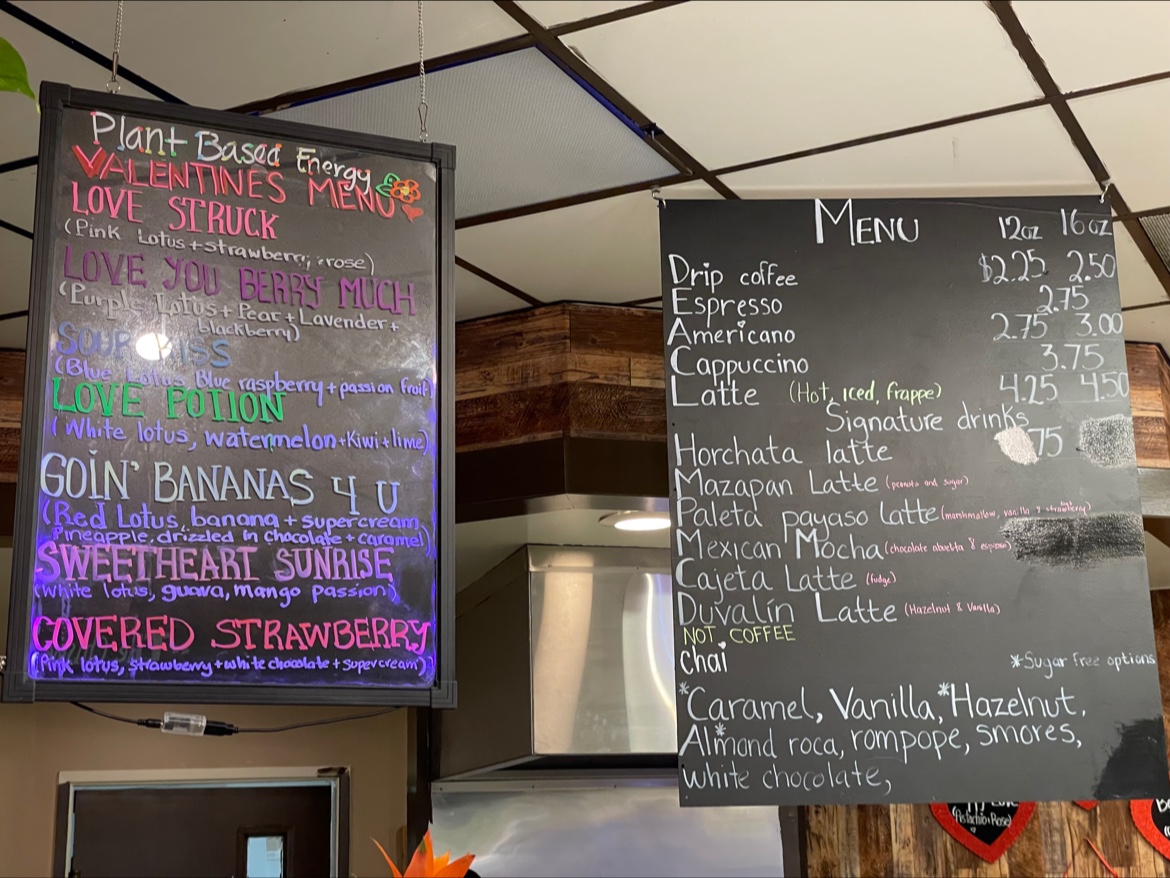 Plant Based Energy
VALENTINES MENU
LOVE STRUCK
(Pink Lotus + strawberry, + rose)
LOVE YOU BERRY MUCH
(Purple Lotus + Pear + Lavender +
blackberry)
SOUR KISS
(Blue Lotus Blue raspberry + passion fruit)
LOVE POTION
(White lotus, watermelon + Kiwi + lime)
GOIN' BANANAS 4 U
(Red Lotus, banana + supercream
Pineapple, drizzled in chocolate + caramel)
SWEETHEART SUNRISE
(White lotus, guava, mango passion)
COVERED STRAWBERRY
(Pink lotus, strawberry + white chocolate + supercream)
MENU 12oz 16oz
Drip coffee $2.25 2.50
Espresso 2.75
Americano 2.75 3.00
Cappuccino 3.75
Latte (Hot, iced, frappe) 4.25 4.50
Signature drinks
Horchata latte 75
Mazapan Latte (peanuts and sugar)
Paleta payaso Latte (marshmallow, vanilla & strawberry)
Mexican Mocha (chocolate abuelita & espresso)
Cajeta Latte (fudge)
Duvalín Latte (Hazelnut & Vanilla)
NOT COFFEE
Chai
*Sugar free options
*Caramel, Vanilla, *Hazelnut,
Almond roca, rompope, smores,
white chocolate,
(Pistachio + Rose)